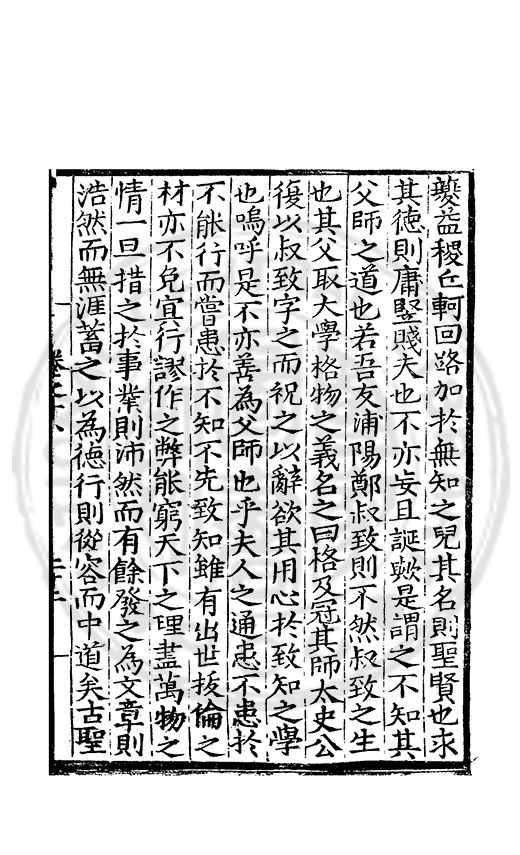 夔益稷丘軻回路加於無知之兒其名則聖賢也求
其德則庸豎賤夫也不亦妄且誕歟是謂之不知其
父師之道也若吾友浦陽鄭叔致則不然叔致之生
也其父取大學格物之義名之曰格及冠其師太史公
復以叔致字之而祝之以辭欲其用心於致知之學
也嗚呼是不亦善為父師也乎夫人之通患不患於
不能行而嘗患於不知不先致知雖有出世拔倫之
材亦不免冥行謬作之弊能窮天下之理盡萬物之
情一旦措之於事業則沛然而有餘發之為文章則
浩然而無涯蓄之以為德行則從容而中道矣古聖